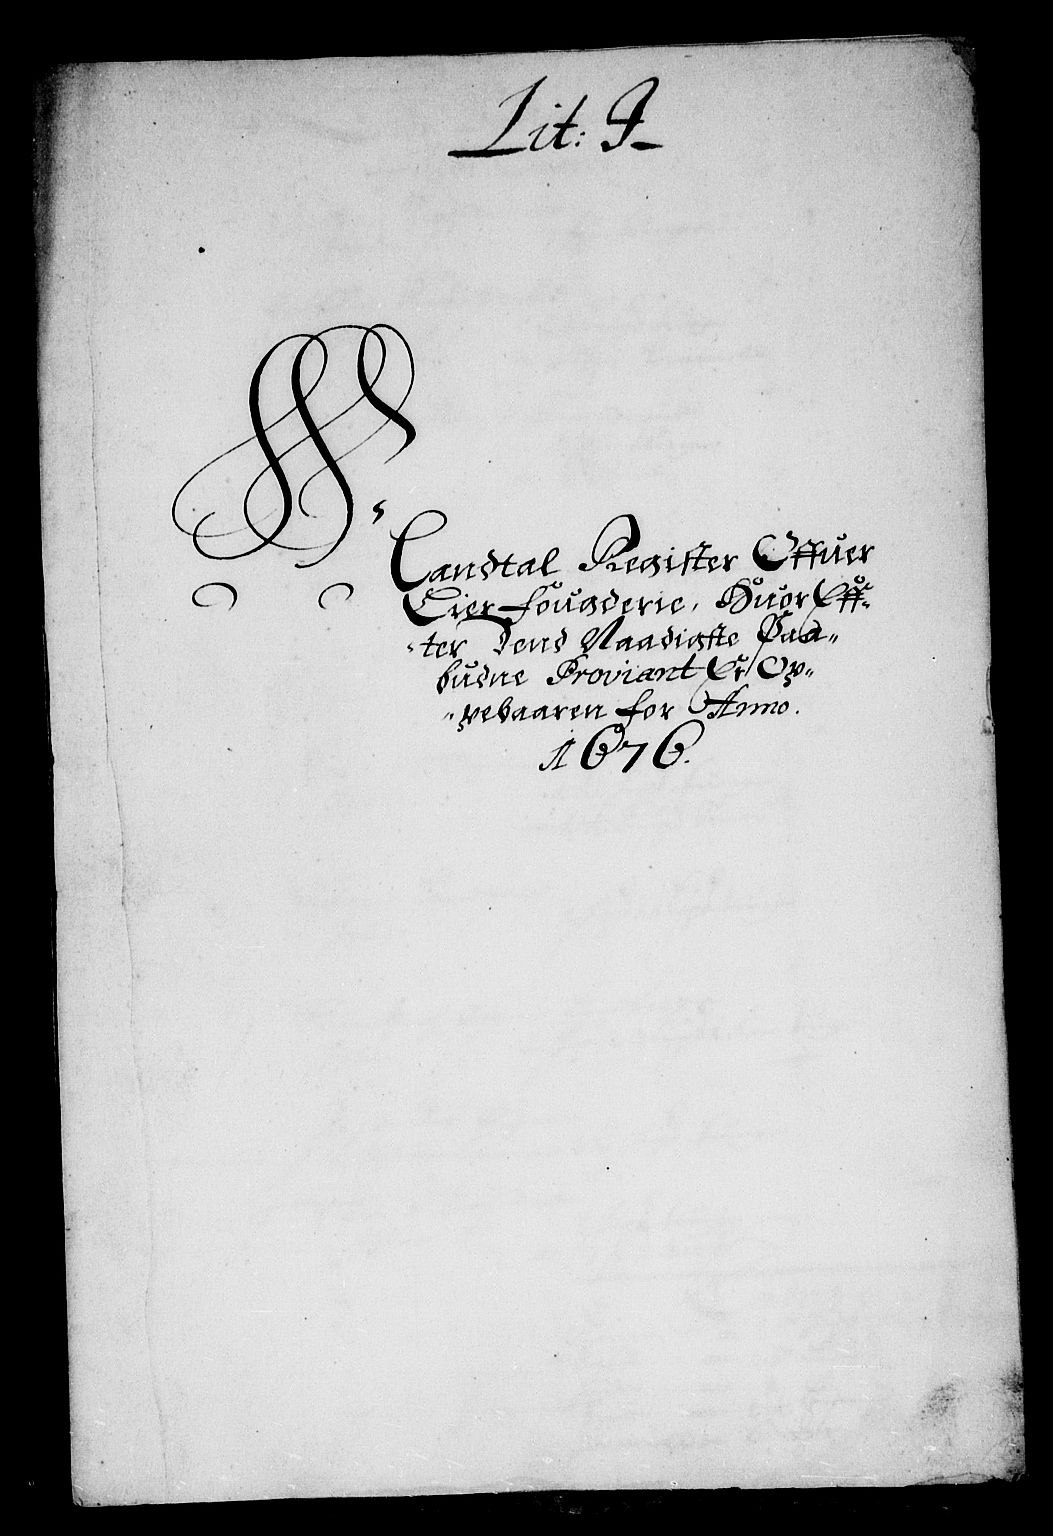 Lit: J
Mandtal Register Offuer
Eier fougderie, Huor Eff-
-ter Dend Naadigste Paa-
budne Proviant Er Op-
-pebaaren for Anno.
1676.